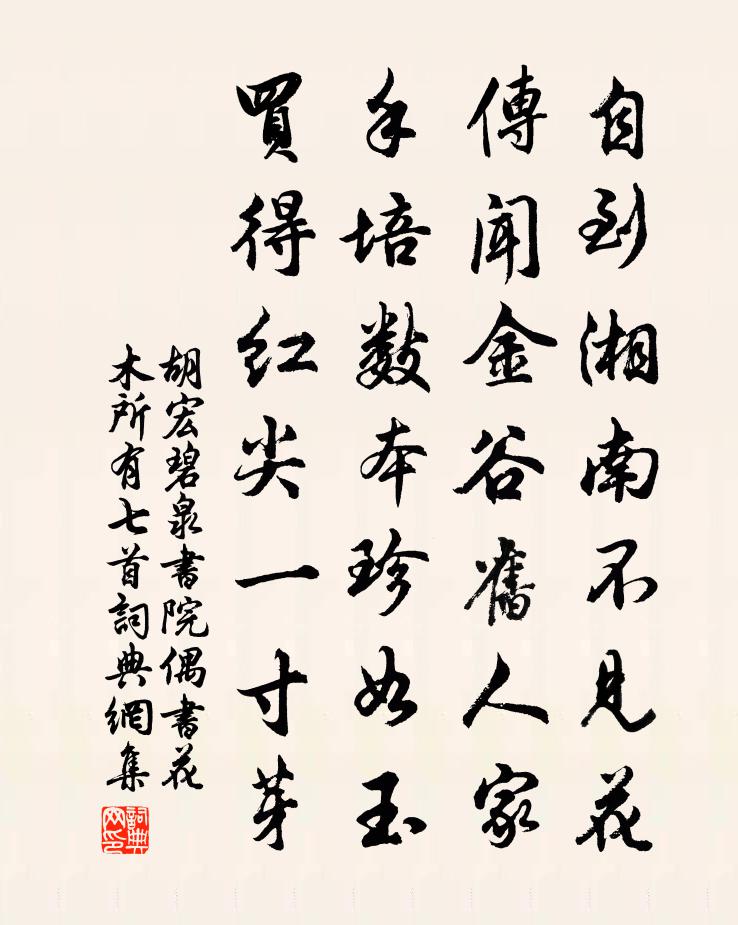 自到湘南不見花
傳聞金谷舊人家
手培數本珍如玉
買得紅尖一寸芽
胡宏碧泉書院偶書花
木所有七首詞典網集
詞典
网印